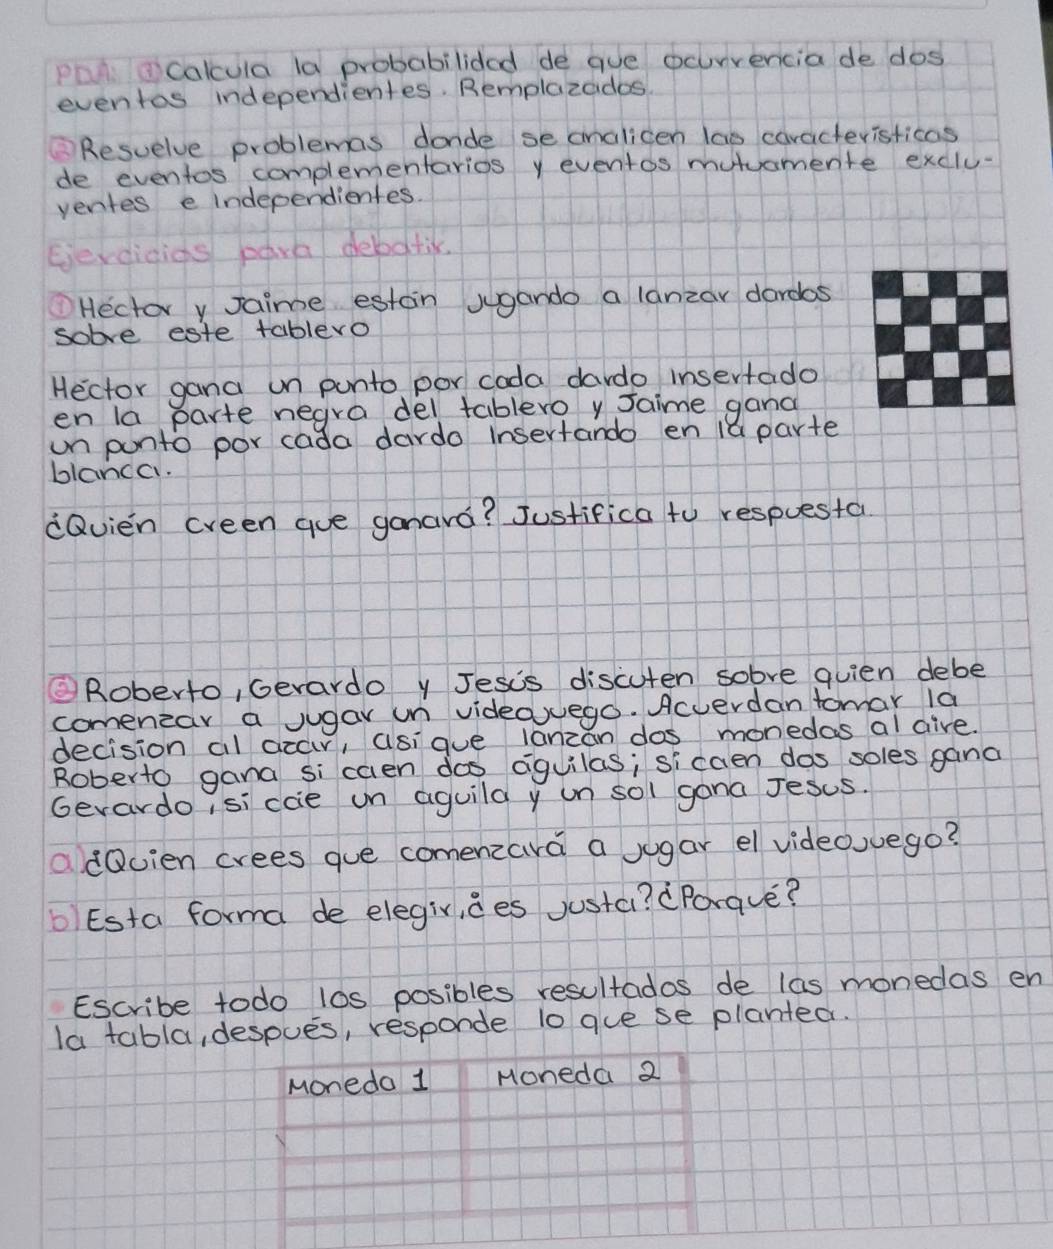 PDA: ① Calcula la probabilidad de que ocurrencia de dos
eventos independientes. Remplazados.
② Resuelve problemas donde se analicen las caracteristicas
de eventos complementarios y eventos mutuamente exclu-
yentes e independientes.
Ejercicios para debatir.
① Héctor y Jaime están jugando a lanzar dardos
sobre este tablero
Héctor gana un punto por cada dardo insertado
en la parte negra del tablero y Jaime gana
un punto por cada dardo insertando en la parte
blanca.
¿Quién creen que ganará? Justifica tu respuesta.
② Roberto, Gerardo y Jesús discuten sobre quien debe
comenzar a jugar un videojuego. Acuerdan tomar la
decision al azar, asi que lanzan dos monedas al aire.
Roberto gana si caen dos águilas; si caen dos soles gana
Gerardo, si cae un aguila y un sol gana Jesus.
a) ¿Quien crees que comenzará a jugar el videojuego?
b) Esta forma de elegir, ¿es justa? ¿Porqué?
• Escribe todo los posibles resultados de las monedas en
la tabla, después, responde lo que se plantea.
Moneda 1 Moneda 2